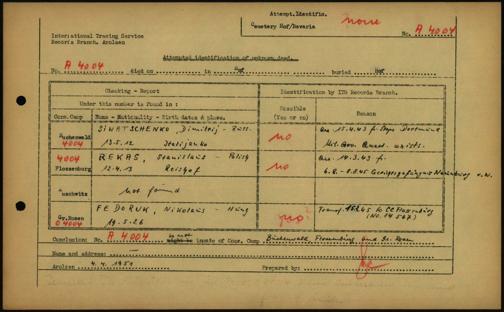 Attempt. Identific.
none
Cemetery Hof/Bavaria
No. A 4004
International Tracing Service
Records Branch. Arolsen
Attempted identification of unknown dead.
No. A 4004 died on in Hof buried Hof
Checking - Report
Identification by ITS Records Branch.
Under this number is Found in :
Possible (Yes or no)
Reason
Conc. Camp
Name - Nationality - Birth dates & place.
Buchenwald 4004
SIWATSCHENKO, Dimitrij - Russ.
13.5.12
no
15.4.43
Mil. Gov. Quest. exists.
4004 Flossenburg
REKAS, Stanislaus - Polish
12.4.13 Reishof
no
14.3.43
Auschwitz
not found
Gr. Rosen 04004
FEDORUK, Nikolaus Hung
19.5.26
no
to CC Flossenburg
Conclusion: No. A 4004 is not inmate of Conc. Camp Buchenwald Flossenburg and Gr. Rosen
Name and address:
Arolsen 4. 4. 1951 Prepared by: